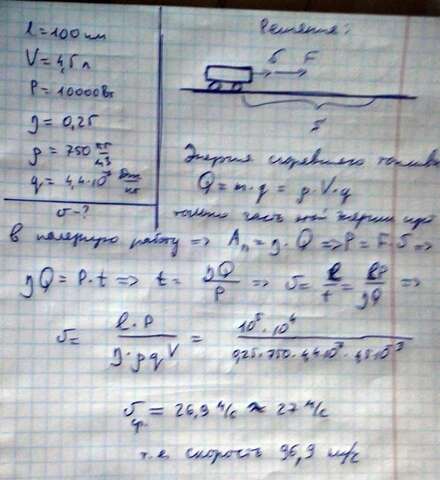 l = 100 км
V = 4,5 л
P = 10000 Вт
η = 0,25
ρ = 750 кг/м3
q = 4,4·10⁷ Дж/кг
υ - ?
Решение:
υ F
S
Энергия сгоревшего топлива
Q = m·q = ρ·V·q
только часть этой энергии идет
в полезную работу => Aп = η·Q => P = F·υ =>
ηQ = P·t => t = ηQ/P => υ = l/t = lP/ηQ =>
υ = l·P/η·ρqV = 10⁵·10⁴/0,25·750·4,4·10⁷·4,5·10⁻³
υср. = 26,9 м/с ≈ 27 м/с
т.е. скорость 96,9 км/ч